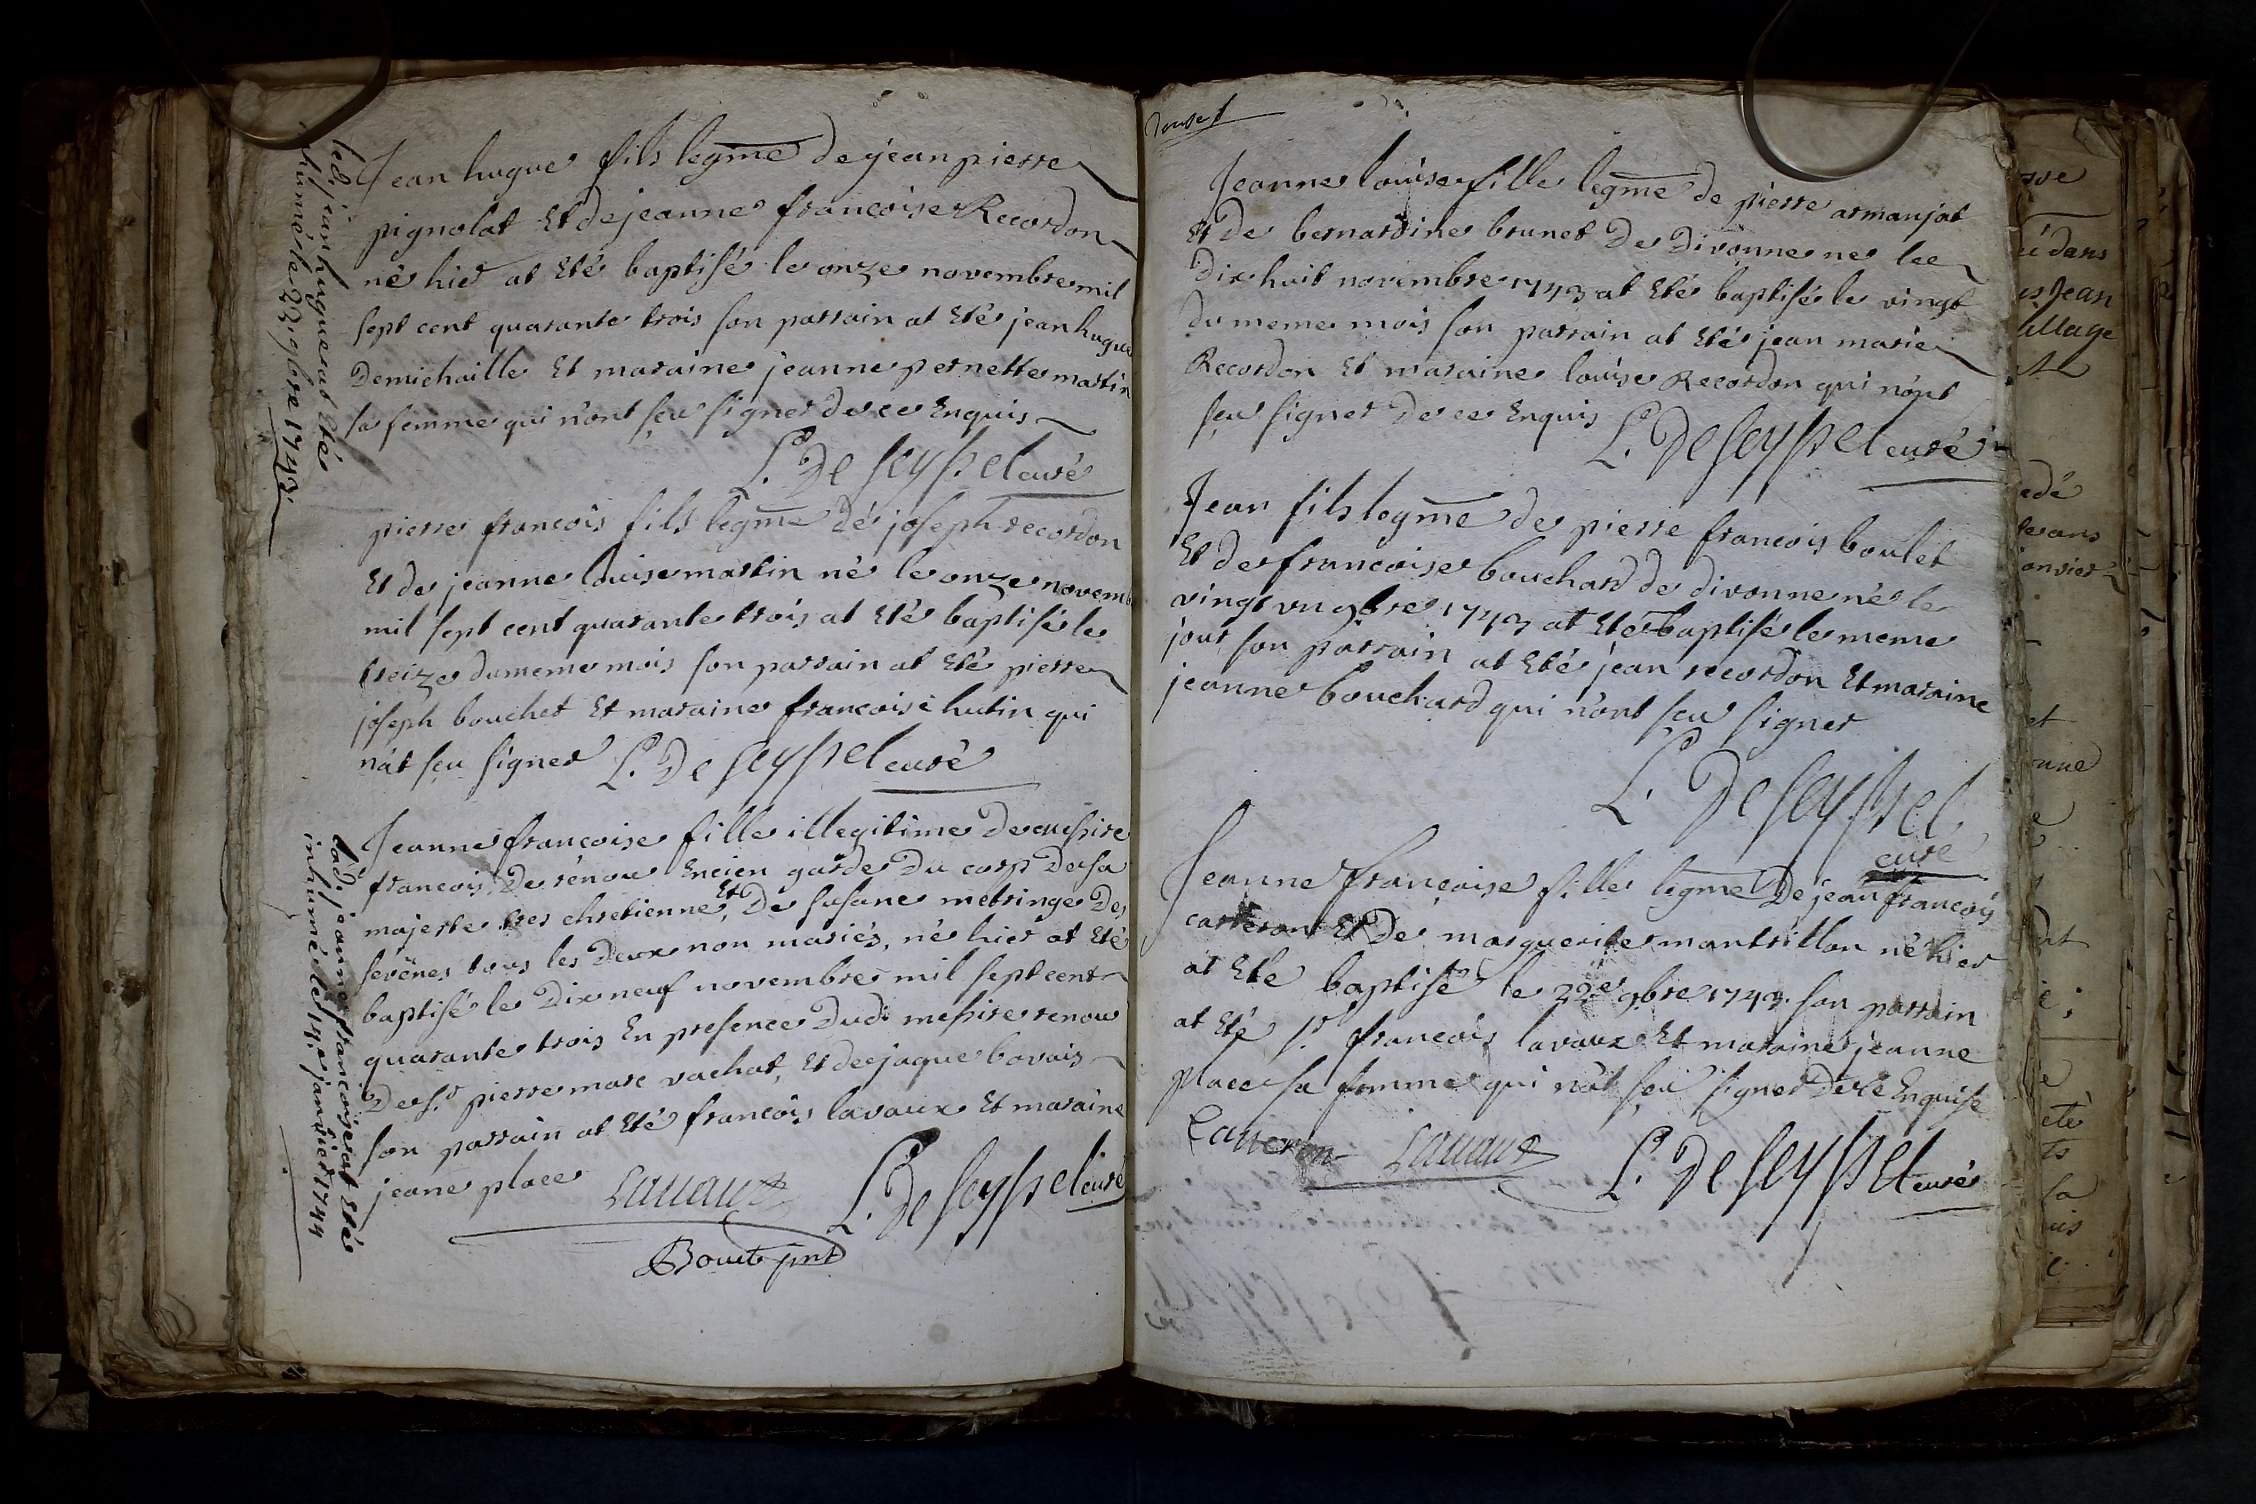 led. jean hugue at Eté
inhumé le 23. 9bre 1743.
Jean hugue fils legme de jean pierre
pignolat Et de jeanne francoise Recordon
né hier at Eté baptisé le onze novembre mil
sept cent quarante trois son parrain at Eté jean hugue
Demichaille Et maraine jeanne pernette martin
sa femme qui n'ont sçu signer de ce Enquis
L. De Seyssel curé
pierre francois fils legme de joseph recordon
Et de jeanne louise martin né le onze novemb
mil sept cent quarante trois at Eté baptisé le
treize du meme mois son parrain at Eté pierre
joseph bouchet Et maraine francoise hutin qui
n'at sçu signer L. De Seyssel curé
lad. jeanne francoise at Eté
inhumé le 14e janvier 1744
Jeanne francoise fille illegitime de messire
francois De rénou Encien garde Du corp De sa
majeste tres chretienne, Et De susane metringe Des
sevënes tous les Deux non mariés, né hier at Eté
baptisé le Dix neuf novembre mil sept cent
quarante trois En presence Dud. messire renou
De sr. pierre marc vachat, Et de jaque bovais
son parrain at Eté francois lavaux Et maraine
jeane place Lauaux L. De Seyssel curé
Bouet pnt
Jeanne louise fille legme de pierre armanjat
Et De bernardine brunet De Divonne ne lee
Dix huit novembre 1743 at Eté baptisé le vingt
du meme mois son parrain at Eté jean marie
Recordon Et maraine louise Recordon qui n'ont
sçu signer De ce Enquis L. De Seyssel curé
Jean fils legme de pierre francois boulet
Et de francoise bouchard de divonne né le
vingt un 9bre 1743 at Eté baptisé le meme
jour son parrain at Eté jean recordon Et maraine
jeanne bouchard qui n'ont sçu signer
L. De Seyssel
curé
Jeanne francoise fille legme De jean francois
carteron Et De marguerite mantrillon né hier
at Eté baptisé le 22e 9bre 1743. son parrain
at Eté sr. francois lavaux Et maraine jeanne
place sa femme qui n'at sçu signer De ce Enquise
Lauaux L. De Seyssel curé